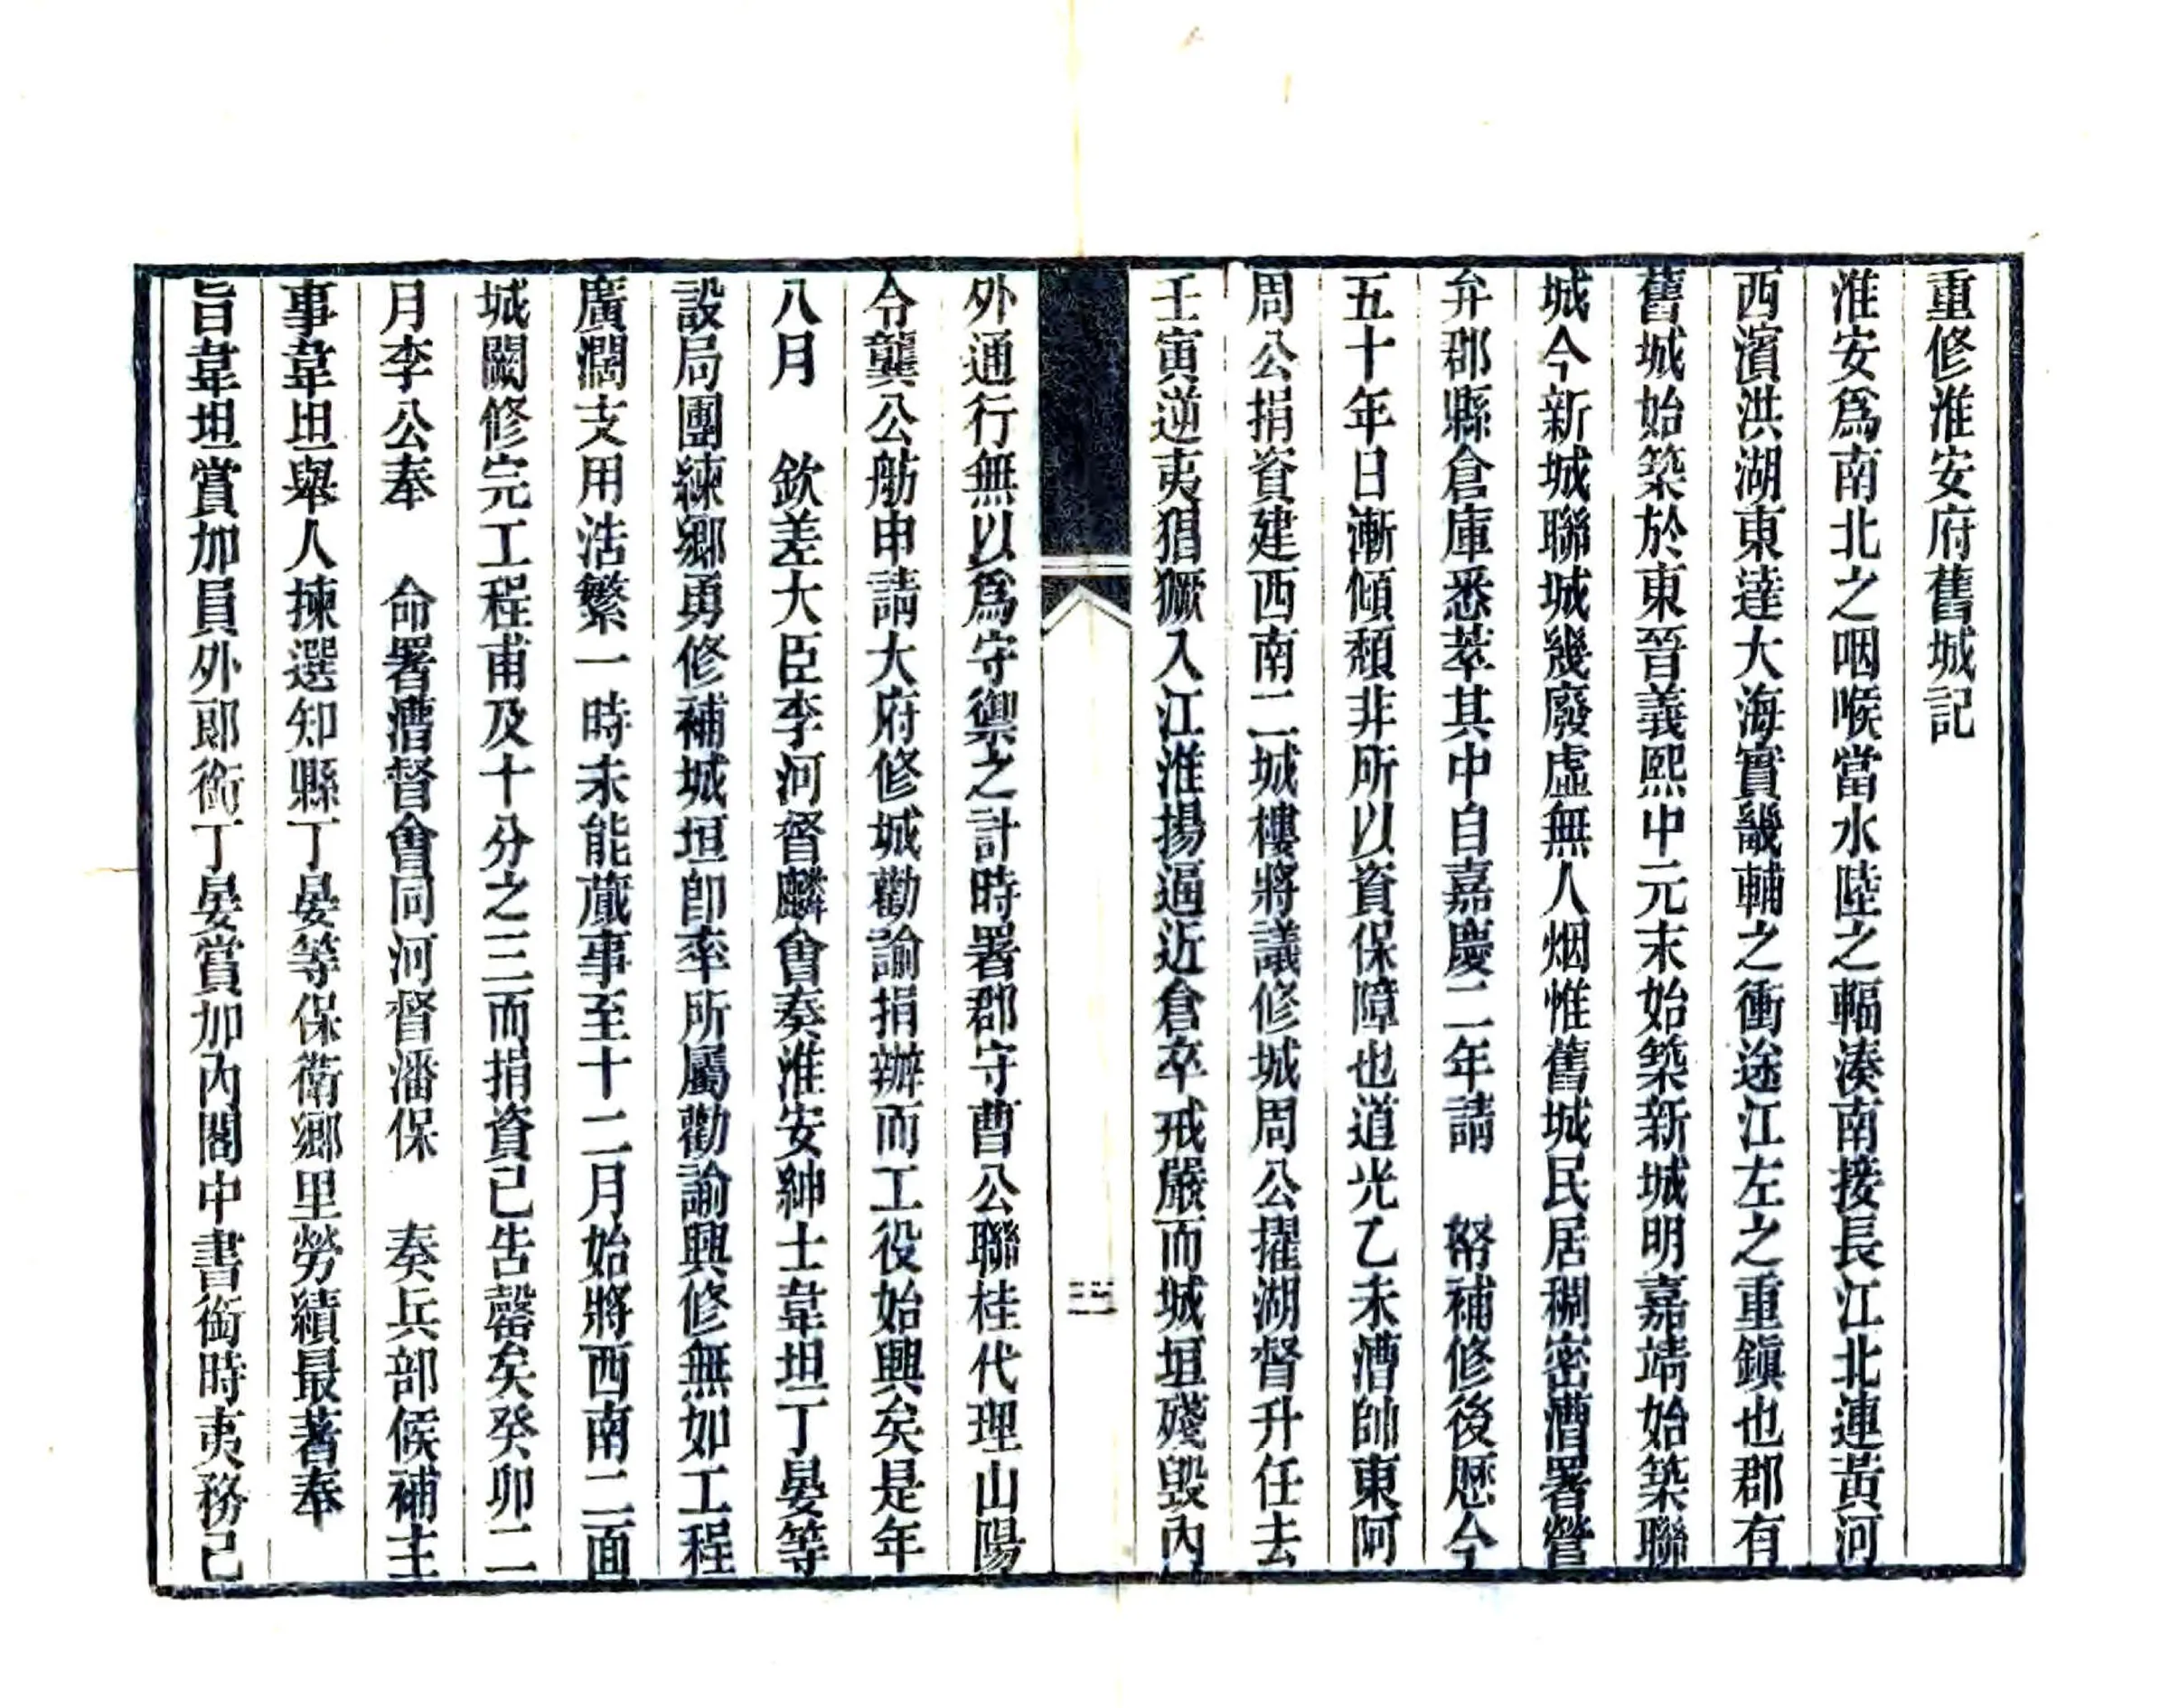 重修淮安府舊城記
淮安爲南北之咽喉當水陸之輻湊南接長江北連黃河
西濱洪湖東達大海實畿輔之衝途江左之重鎮也郡有
舊城始築於東晉義熙中元末始築新城明嘉靖始築聯
城今新城聯城幾廢虛無人烟惟舊城民居稠密漕署營
弁郡縣倉庫悉萃其中自嘉慶二年請 帑補修後歷今
五十年日漸傾頹非所以資保障也道光乙未漕帥東阿
周公捐資建西南二城樓將議修城周公擢湖督升任去
壬寅逆夷猖獗入江淮揚逼近倉卒戒嚴而城垣殘毀內
外通行無以爲守禦之計時署郡守曹公聯桂代理山陽
令龔公舫申請大府修城勸諭捐辦而工役始興矣是年
八月 欽差大臣李河督麟會奏淮安紳士韋坦丁晏等
設局團練鄉勇修補城垣卽率所屬勸諭興修無如工程
廣濶支用浩繁一時未能蕆事至十二月始將西南二面
城闕修完工程甫及十分之三而捐資已告罄矣癸卯二
月李公奉 命署漕督會同河督潘保 奏兵部候補主
事韋坦舉人揀選知縣丁晏等保衛鄉里勞績最著奉
旨韋坦賞加員外郎銜丁晏賞加內閣中書銜時夷務已